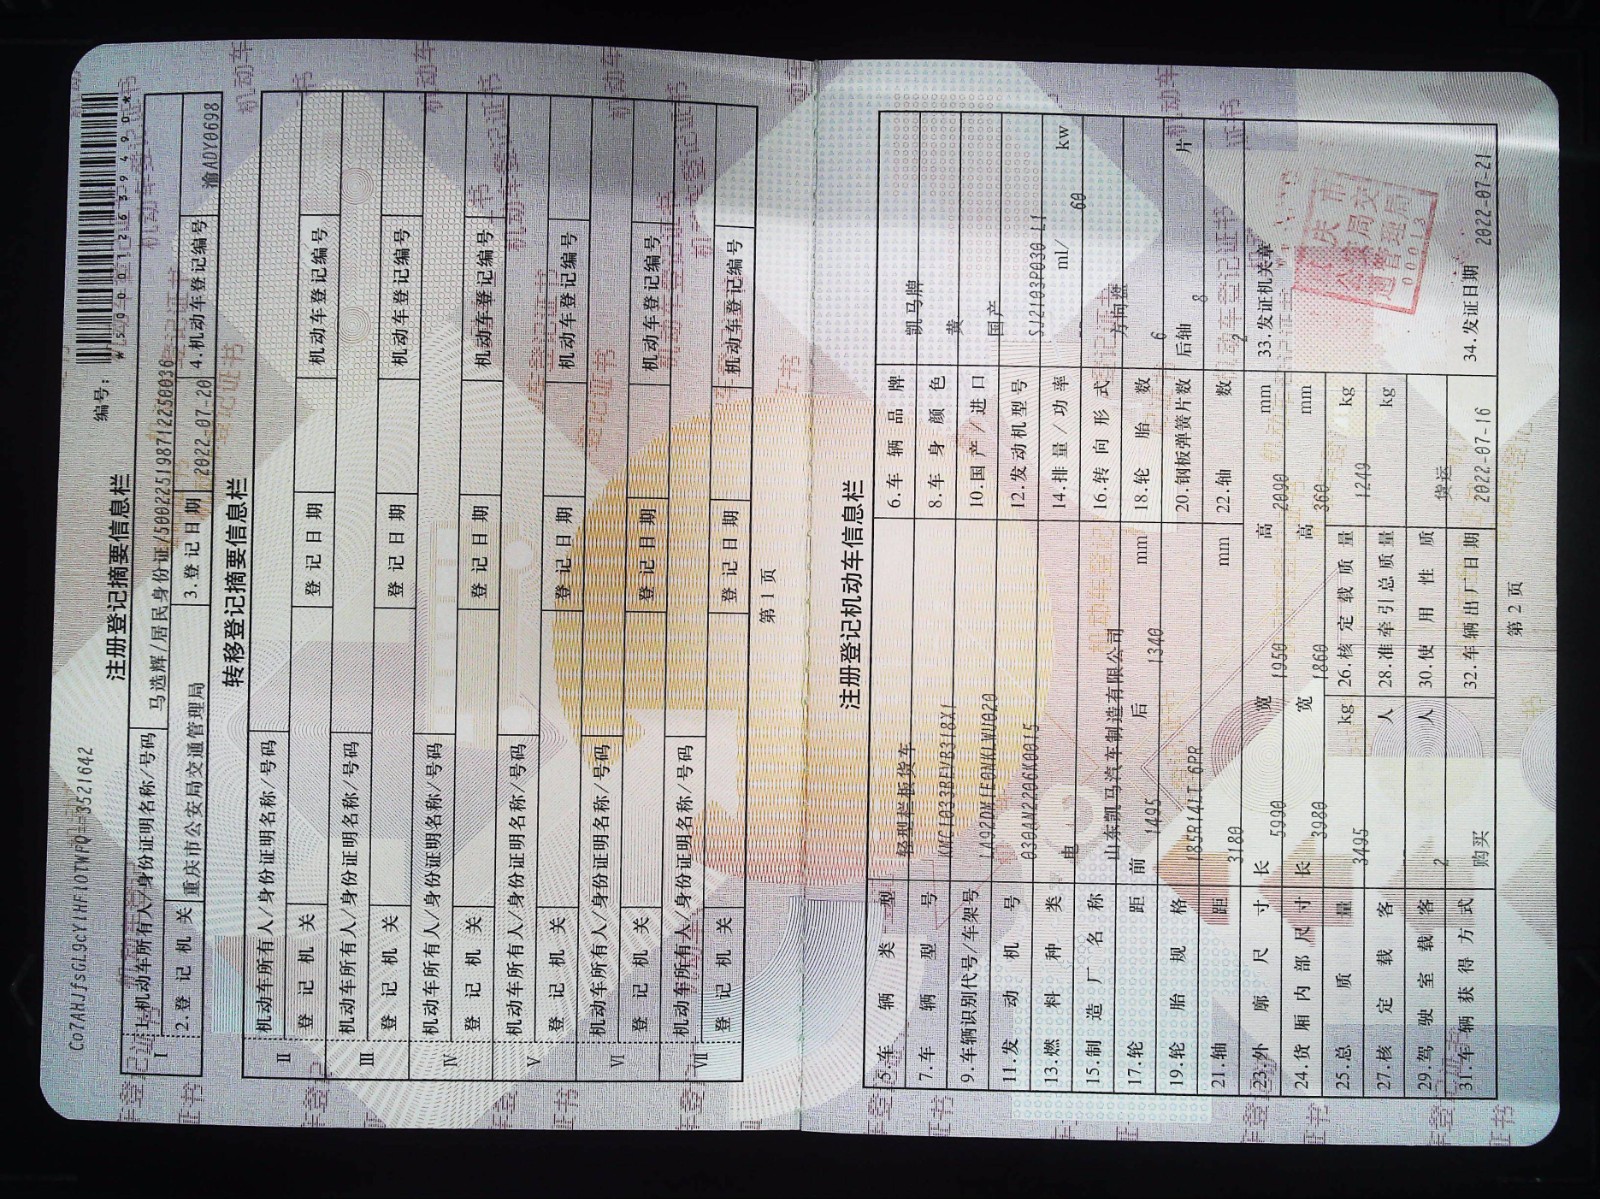 Co7AHJfsGL9cYlHFlOTWFQ==3521642
注册登记摘要信息栏
编号：
*500012639490*
I
1.机动车所有人/身份证明名称/号码 马选辉/居民身份证/500225198712250036
2.登记机关 重庆市公安局交通管理局 3.登记日期 2022-07-20 4.机动车登记编号 渝ADY0698
转移登记摘要信息栏
II
机动车所有人/身份证明名称/号码
登记机关 登记日期 机动车登记编号
III
机动车所有人/身份证明名称/号码
登记机关 登记日期 机动车登记编号
IV
机动车所有人/身份证明名称/号码
登记机关 登记日期 机动车登记编号
V
机动车所有人/身份证明名称/号码
登记机关 登记日期 机动车登记编号
VI
机动车所有人/身份证明名称/号码
登记机关 登记日期 机动车登记编号
VII
机动车所有人/身份证明名称/号码
登记机关 登记日期 机动车登记编号
第1页
注册登记机动车信息栏
5.车辆类型 轻型栏板货车 6.车辆品牌 凯马牌
7.车辆型号 KMC1033BEVB318X1 8.车身颜色 黄
9.车辆识别代号/车架号 10.国产/进口 国产
11.发动机号 030AN2206K0015 12.发动机型号 SJ2103P030 L1
13.燃料种类 电 14.排量/功率 ml/ 60 kw
15.制造厂名称 山东凯马汽车制造有限公司 16.转向形式 方向盘
17.轮距 前 1495 后 1340 mm 18.轮胎数 6
19.轮胎规格 185R14LT 6PR 20.钢板弹簧片数 后轴 8 片
21.轴距 3180 mm 22.轴数 2
23.外廓尺寸 长 5990 宽 1950 高 2090 mm 33.发证机关章
24.货厢内部尺寸 长 3980 宽 1860 高 360 mm
25.总质量 3495 kg 26.核定载质量 1249 kg
27.核定载客 人 28.准牵引总质量 kg
29.驾驶室载客 2 人 30.使用性质 货运
31.车辆获得方式 购买 32.车辆出厂日期 2022-07-16 34.发证日期 2022-07-21
重庆市
公安局交
通管理局
00013
第2页